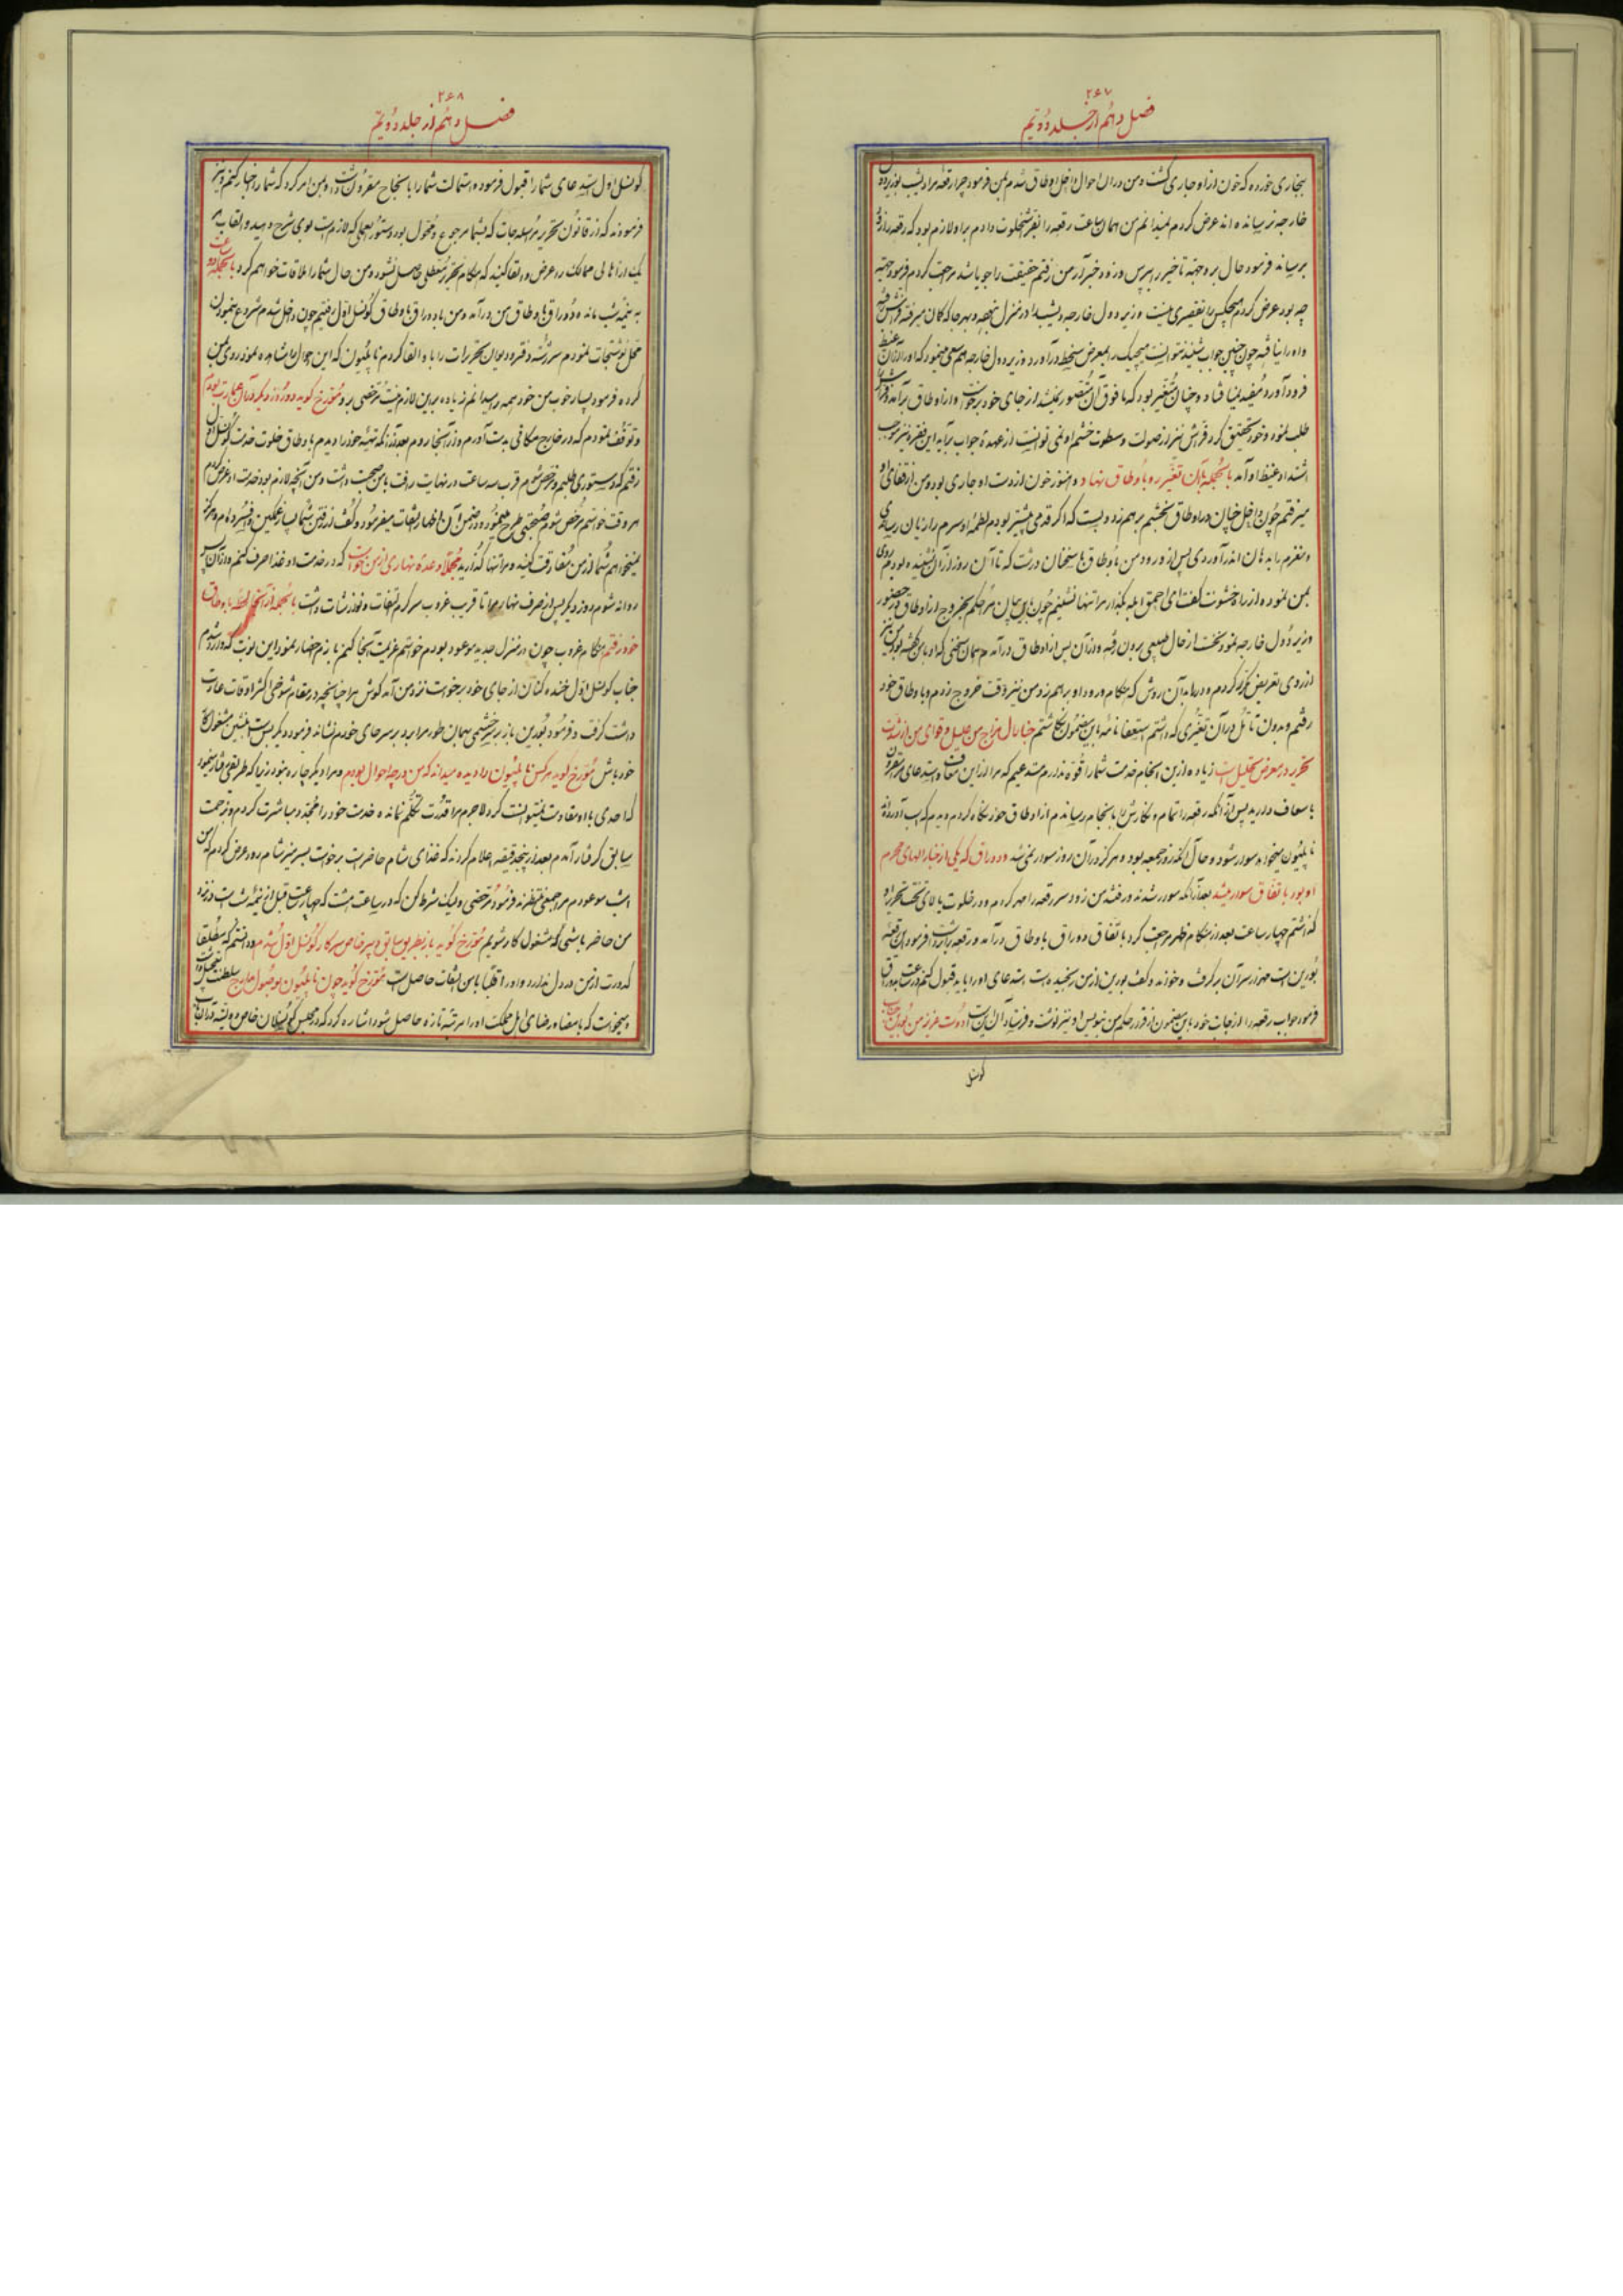 ۲۶۷
فصل دهم از جلد دویم
بخاری خورده که خون از او جاری گشت و من در آن احوال داخل اوطاق شدم بمن فرمود چرا رقعه مرا دیشب بوزیر دول
خارجه نرسانده‌اند عرض کردم نمیدانم من همان ساعت رقعه را بفراش خلوت دادم براو لازم بود که رقعه را زود
برساند فرمود حال برو جهة تاخیر را بپرس و زود خبر آر من رفتم حقیقت را جویا شده مراجعت کردم فرمود جهة
چه بود عرض کردم هیچکس را تقصیری نیست وزیر دول خارجه دیشب در منزل نبوده و بهر جا که گمان میرفته فراش رفته
و او را نیافته چون چنین جواب شنید نتوانست هیچیک را بمعرض سخط درآورد
فرود آورد مفید نیفتاد و چنان متغیر بود که مافوق آن متصور نمیشد از جای خود برخواست و از اوطاق برآمد و فراش را
طلب نمود و خود تحقیق کرد فراش نیز از صولت و سطوت خشم او نمی توانست از عهدهٔ جواب برآید این فقره نیز موجب
اشتداد غیظ او آمد بالجمله بآن تغیر رو باوطاق نهاد و هنوز خون از دست او جاری بود و من از قفای او
میرفتم چون داخل شد چنان در اوطاق بخشم برهم زد و بست که اگر قدمی پیشتر بودم لطمهٔ او سرم را زیان رسانیدی
بمن نموده از راه خشونت گفت ای احمق ابله بگذار مرا تنها نشینم
وزیر دول خارجه نمود سخت از حال طبیعی بیرون رفته و از آن پس از اوطاق درآمدم همان سخنی که او با من گفته بود من نیز
از روی تعریض مکرر کردم و در را بدان روش که هنگام ورود او برهم زد من نیز وقت خروج زدم و باوطاق خود
رفتم و بدون تأمل در آن تغیری که داشتم استعفا نامهٔ باین مضمون نگاشتم جنابا حال مزاج من علیل و قوای من از شدت
تحریر در معرض تحلیل است زیاده از این انجام خدمت شما را قوه ندارم مستدعیم که مرا از این معاف و استدعای مرا مقرون
باسعاف دارید پس از آنکه رقعه را تمام و نگارش را بانجام رسانیدم از اوطاق خود نگاه کردم دیدم که اسب آوردند
ناپلیون میخواهد سوار شود و حال آنکه روز جمعه بود و هرگز در آن روز سوار نمی شد و دوراق که یکی از جنرالهای محرم
او بود باتفاق سوار میشد بعد از آنکه سوار شدند و رفتند من زود سر رقعه را مهر کردم و در خلوت بالای تخت تحریر او
گذاشتم چهار ساعت بعد از هنگام ظهر مراجعت کرد باتفاق دوراق باوطاق درآمد و رقعه را برداشت فرمود این رقعه
بورین است مهر از سر آن برگرفت و خواند و گفت بورین از من رنجیده است استدعای او را باید قبول کنم
فرمود جواب رقعه را از جانب خود باین مضمون از قرار حکم من بنویس او نیز نوشت و فرستاد آن این است دوست عزیز من بورین جناب
کونسل
۲۶۸
فصل دهم از جلد دویم
کونسل اول استدعای شما را قبول فرموده استمالت شما را بانجاح مقرون داشت و بمن امر کرد که شما را اخبار کنم و نیز
فرمودند که از قانون تحریر مراسله‌جات که بشما مرجوع و محول بود دستورالعملی که لازم است بوی شرح دهید و القاب هر
یک از اهالی ممالک را عرض و القا کنید که هنگام تحریر معطلی حاصل نشود و من حال شما را ملاقات خواهم کرد بالجمله دو ساعت
به نیمه شب مانده دوراق باوطاق من درآمد و من با دوراق باوطاق کونسل اول رفتیم چون داخل شدم شروع بنمودن
محل نوشتجات نمودم سررشته دفتر و دیوان تحریرات را باو القا کردم ناپلیون که این احوال را مشاهده نمود روی بمن
کرده فرمود بسیار خوب من خود همه را میدانم زیاده براین لازم نیست مرخصی برو مورخ گوید دو روز دیگر در آن عمارت بودم
و توقف نمودم که در خارج مکانی بدست آورم و از آنجا روم بعد از آنکه تهیه خود را دیدم باوطاق خلوت خدمت کونسل اول
رفتم که دستوری طلبم و مرخص شوم قرب سه ساعت در نهایت رافت با من صحبت داشت و من آنچه لازم بود خدمت او عرض کردم
هر وقت خواستم مرخص شوم صحبتی طرح مینمود و در ضمن آن اظهار التفات میفرمود و گفت از رفتن شما بسیار غمگین و افسرده‌ام و هرگز
نمیخواهم شما از من مفارقت کنید و مرا تنها گذارید مجملا وعدهٔ نهاری از من خواست که در خدمت او غذا صرف کنم و از آن پس
روانه شوم روز دیگر پس از صرف نهار مرا تا قریب غروب سرگرم التفات و نوازشات داشت بالجمله از آنجا باوطاق
خود رفتم هنگام غروب چون در منزل جدید موعود بودم خواستم عزیمت آنجا کنم بازم احضار نمود این نوبت که وارد شدم
جناب کونسل اول خنده کنان از جای خود برخواست نزد من آمد گوش مرا چنانچه در مقام شوخی اکثر اوقات عادت
داشت گرفت و فرمود بورین باز بر خشمی همان طور مرا برد برسر جای خودم نشانده فرمود دیگر بس است بنشین مشغول کار
خود باش مورخ گوید هرکس ناپلیون را دیده میداند که من در چه احوال بودم و مرا دیگر چاره نبود زیرا که طریقی رفتار مینمود
که احدی با او مقاومت نمیتوانست کرد لاجرم مرا قدرت تکلم نمانده خدمت خود را مجدد مباشرت کردم و بزحمت
سابق گرفتار آمدم بعد از پنج دقیقه اعلام کردند که غذای شام حاضر است برخواست بسر میز شام رود عرض کردم که من
امشب موعودم مرا جمعی منتظرند فرمود مرخصی ولیکن شرط کن که در ساعت هشت که چهار ساعت قبل از نیمه شب است در نزد
من حاضر باشی که مشغول کار شویم مورخ گوید باز بطریق سابق دبیر خاص سرکار کونسل اول شدم و دانستم که مطلقا
کدورت از من در دل ندارد و او را قلبا با من التفات حاصل است مورخ گوید چون ناپلیون بوصول معارج سلطنت تعجیل داشت
و میخواست که بامضا و رضای اهل مملکت او را مرتبه تازه حاصل شود اشاره کرد که در مجلس کونسلان خاص